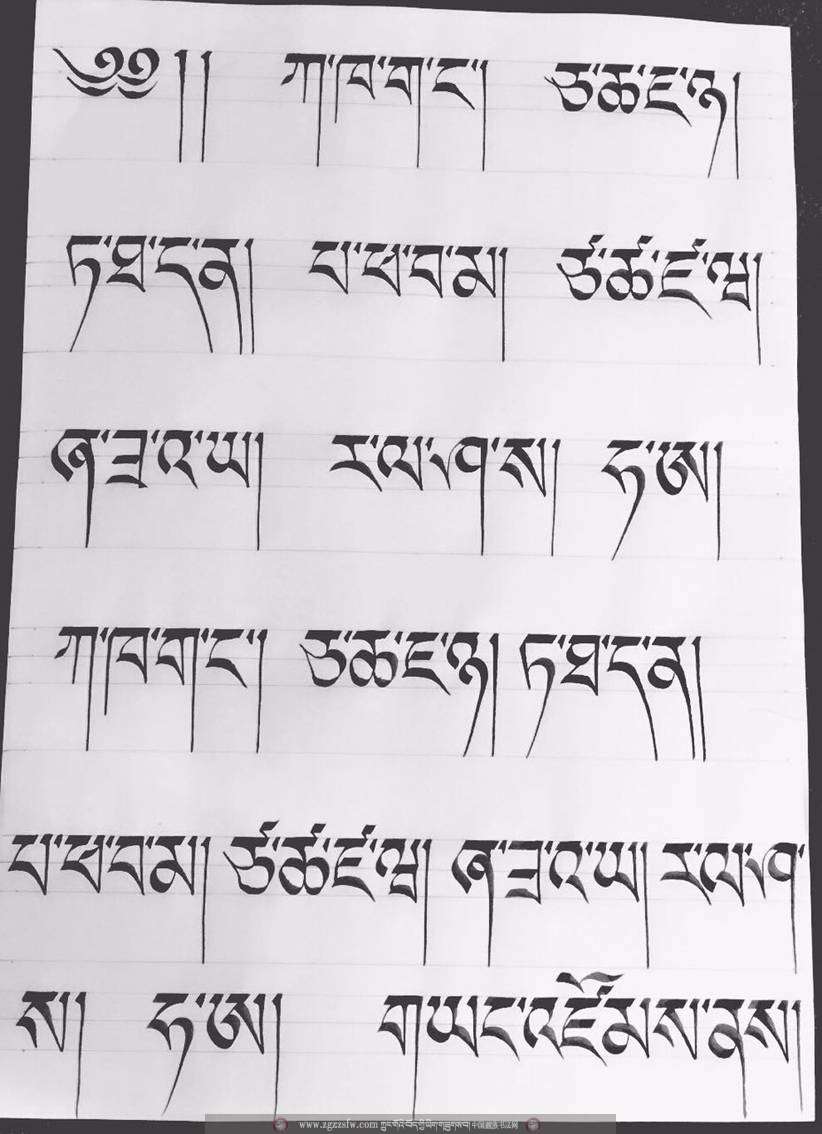 ༄༅།། ཀ་ཁ་ག་ང་། ཅ་ཆ་ཇ་ཉ།
ཏ་ཐ་ད་ན། པ་ཕ་བ་མ། ཙ་ཚ་ཛ་ཝ།
ཞ་ཟ་འ་ཡ། ར་ལ་ཤ་ས། ཧ་ཨ།
ཀ་ཁ་ག་ང་། ཅ་ཆ་ཇ་ཉ། ཏ་ཐ་ད་ན།
པ་ཕ་བ་མ། ཙ་ཚ་ཛ་ཝ། ཞ་ཟ་འ་ཡ། ར་ལ་ཤ་
ས། ཧ་ཨ། གཡང་འཛོམས་ནས།
www.zgzzsfw.com 中国藏族书法网